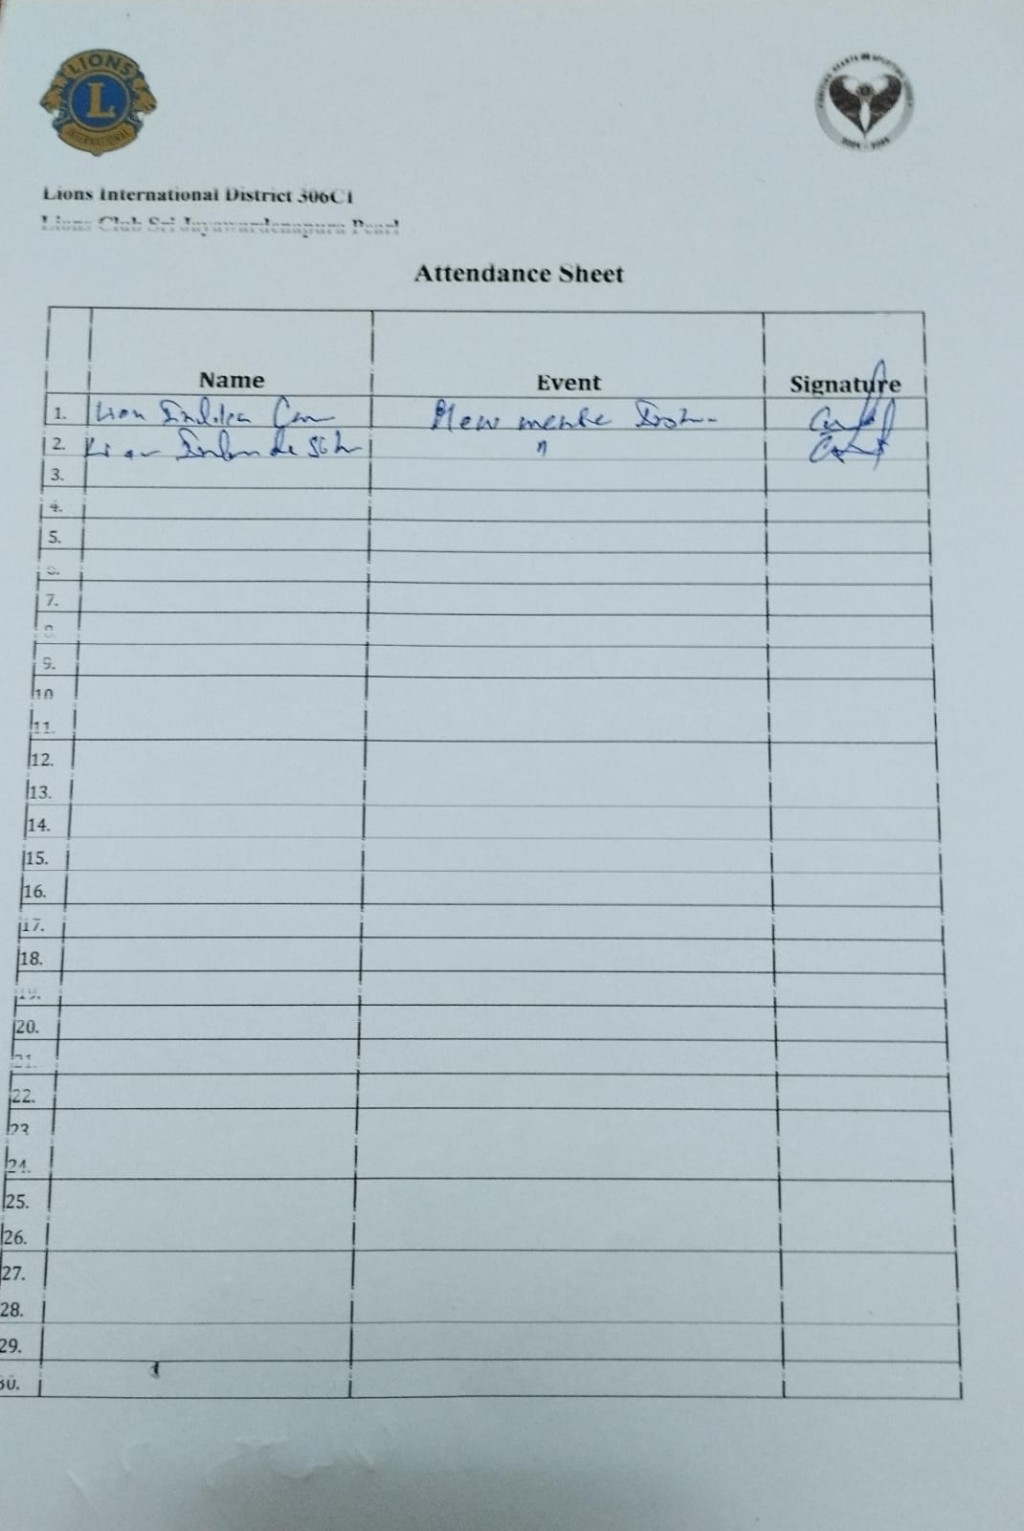 LIONS
L
INTERNATIONAL
Lions International District 306C1
Lions Club Sri Jayawardenapura Pearl
Attendance Sheet
Name Event Signature
1. Lion
2. Lion "
3.
4.
5.
6.
7.
8.
9.
10
11.
12.
13.
14.
15.
16.
17.
18.
19.
20.
21.
22.
23
24.
25.
26.
27.
28.
29.
30.